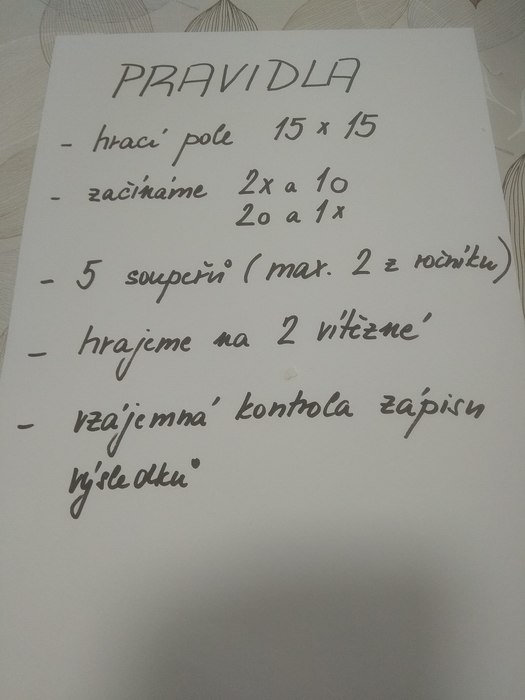 PRAVIDLA
- hrací pole 15 x 15
- začínáme 2x a 1o
2o a 1x
- 5 soupeřů (max. 2 z ročníku)
- hrajeme na 2 vítězné
- vzájemná kontrola zápisu
výsledků